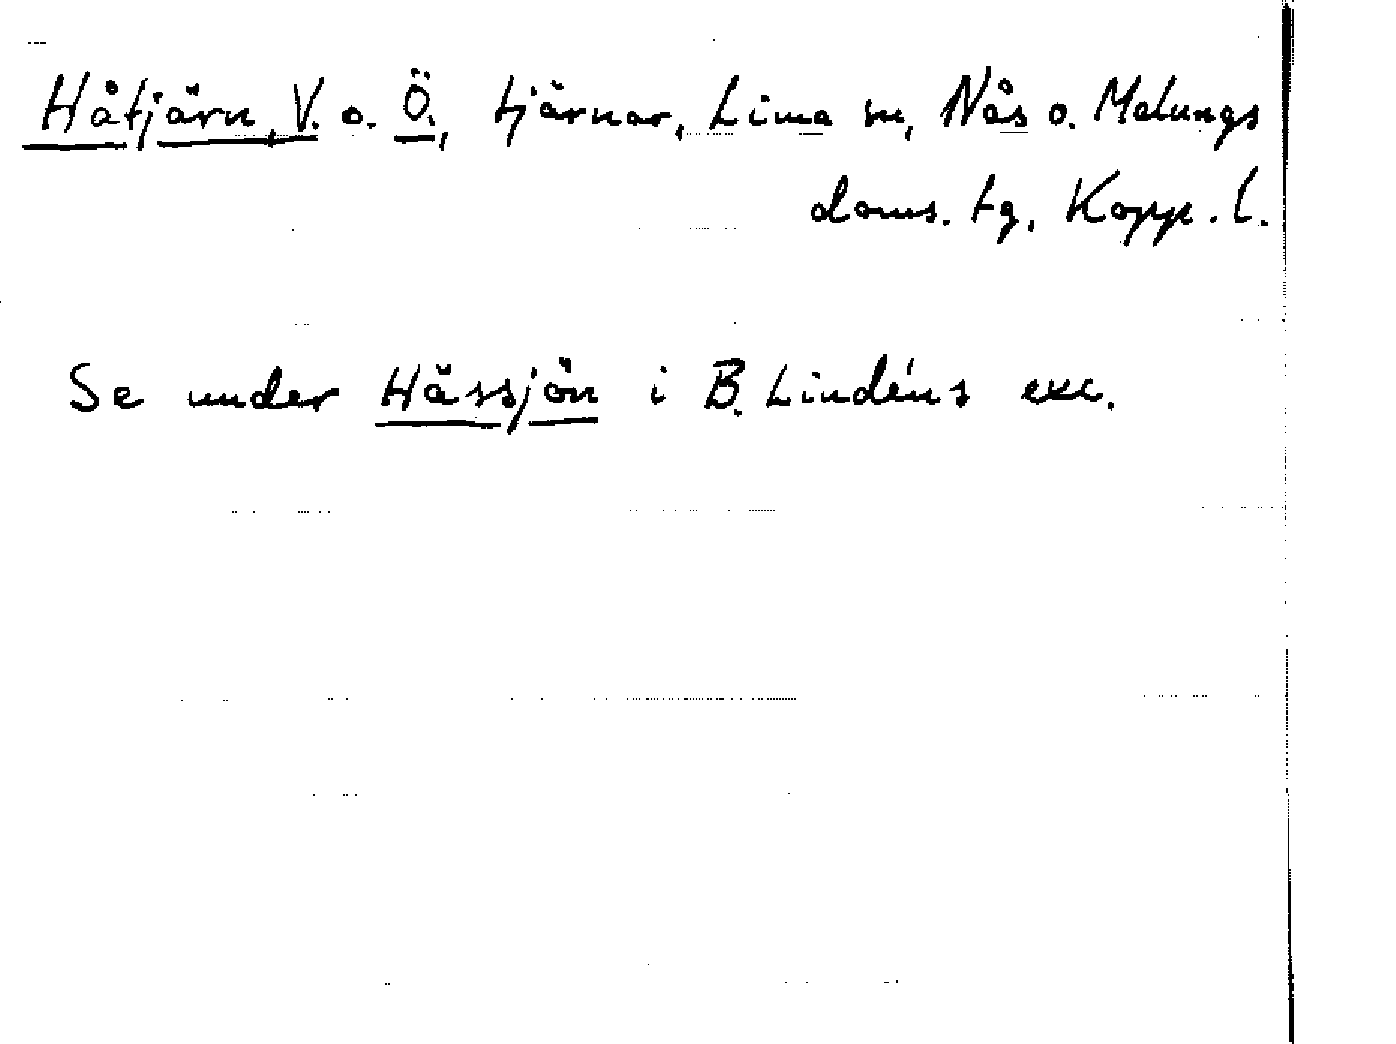 Håtjärn, V. o. Ö., tjärnar, Lima sn, Nås o. Malungs
doms. tg, Kopp. l.
Se under Håssjön i B. Lindéns exc.